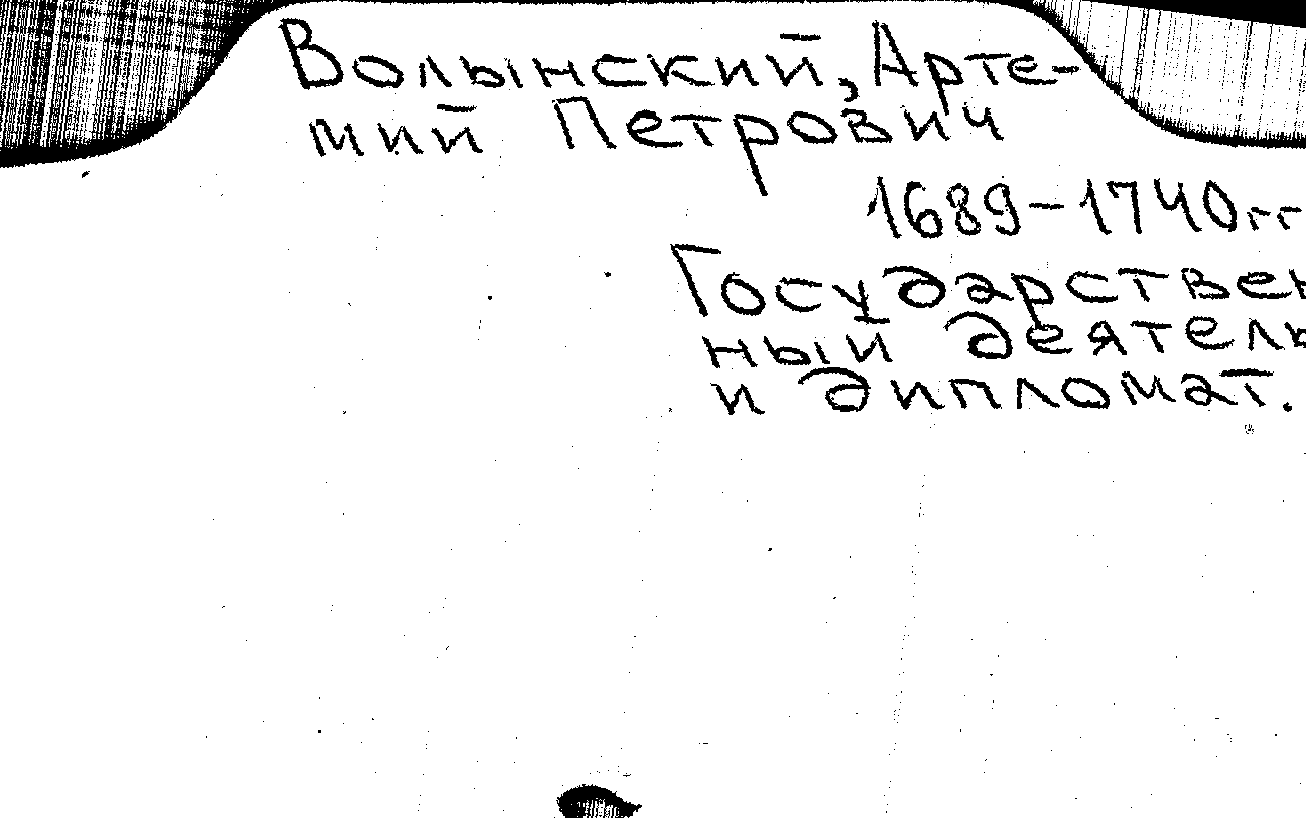 Волынский, Арте-
мий Петрович
1689-1740гг
Государствен
ный деятель
и дипломат.